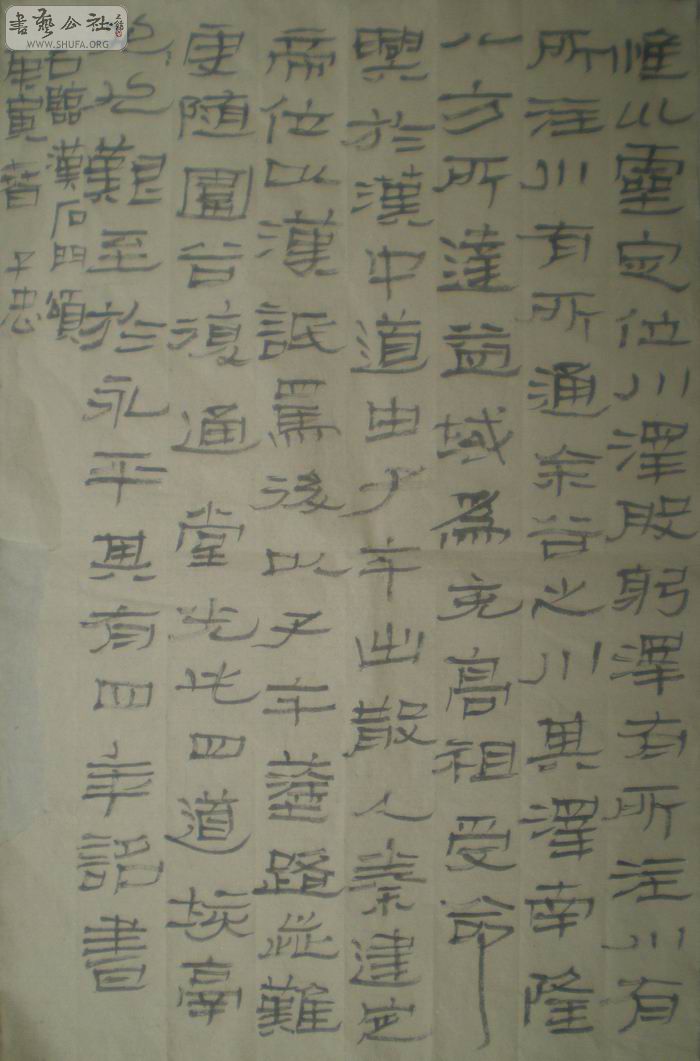 惟巛靈定位川澤股躬澤有所注川有
所注川有所通余谷之川其澤南隆
八方所達益域為充高祖受命
興於漢中道由子午出散入秦建定
帝位以漢詆焉後以子午塗路歰難
更隨圍谷復通堂光此四道垓鬲
艱至於永平其有四年詔書
右臨漢石門頌
庚寅春 子忠
書藝公社
WWW.SHUFA.ORG